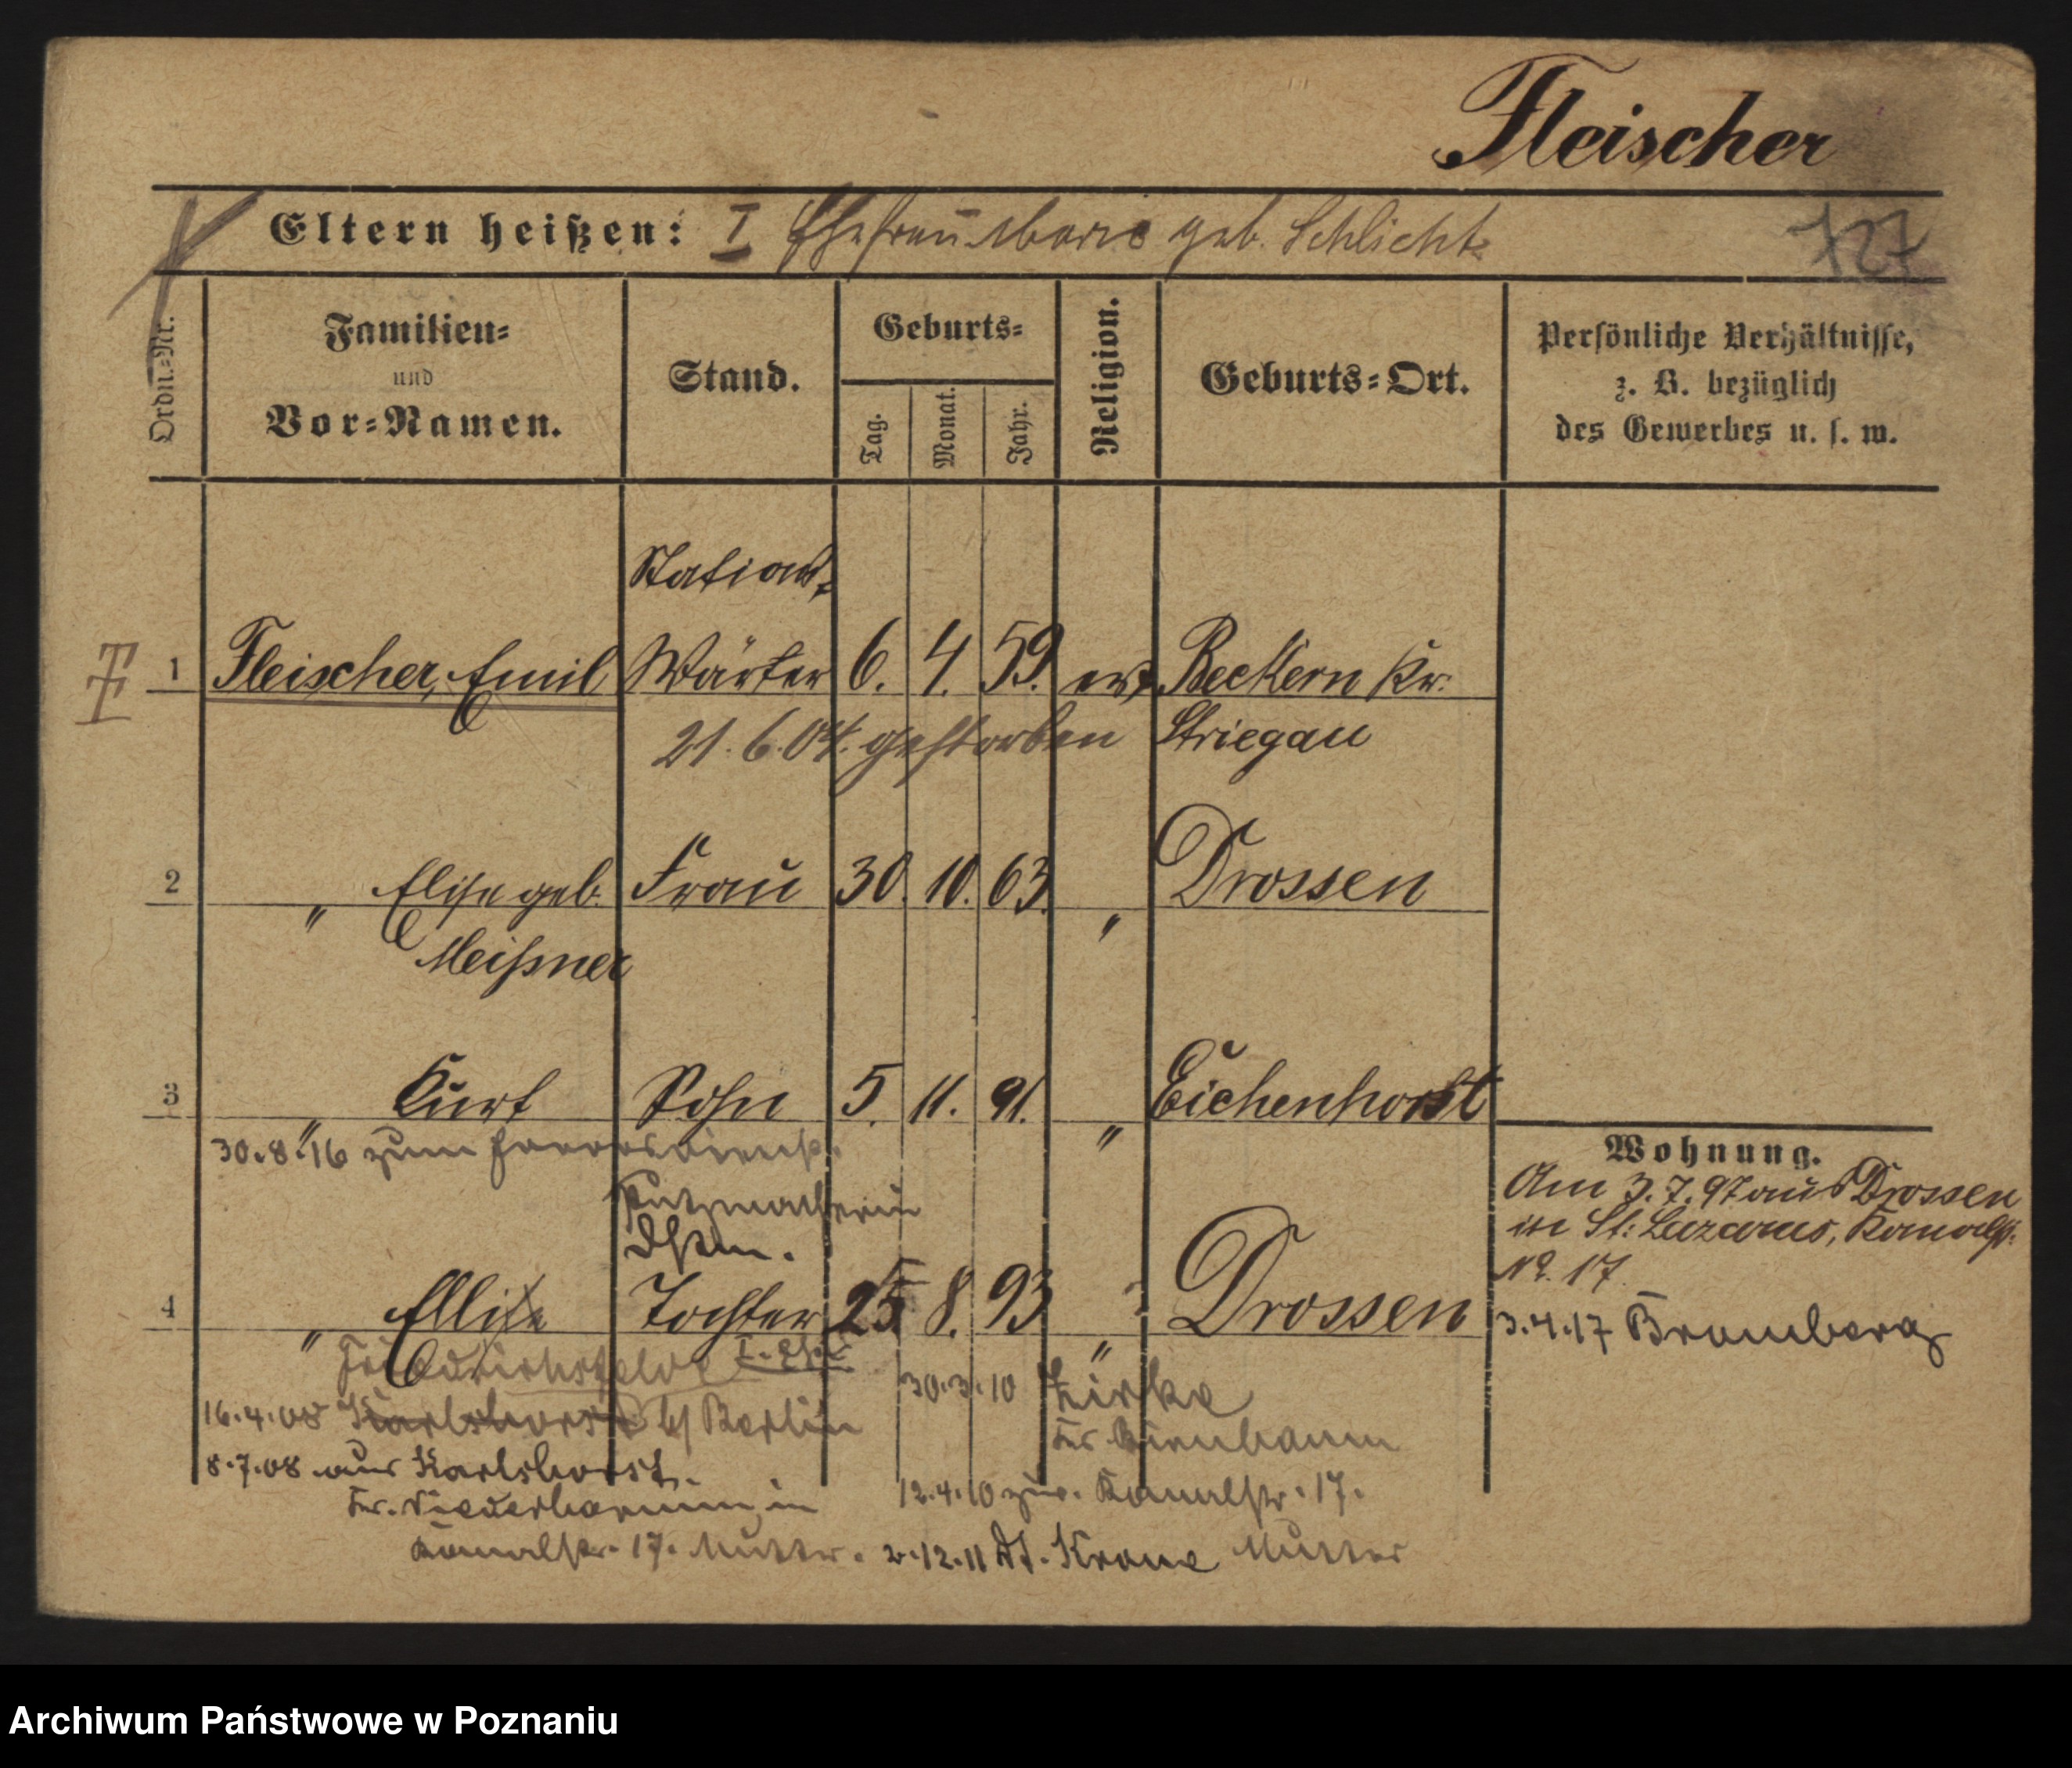 Fleischer
Eltern heißen: I Ehefrau Marie geb. Schlicht
127
Ordn.-Nr.
Familien-
und
Vor-Namen.
Stand.
Geburts-
Tag.
Monat.
Jahr.
Religion.
Geburts-Ort.
Persönliche Verhältnisse,
z. B. bezüglich
des Gewerbes u. s. w.
Stations-
1 Fleischer, Emil Wärter 6. 4. 59. ev. Beckern Kr.
21.6.04. gestorben Striegau
2 " Elise geb. Frau 30. 10. 63. " Drossen
Meißner
3 " Kurt Sohn 5. 11. 91. " Eichenhorst
30.8.16 zum Heeresdienst.
Putzmacherin
4 " Ellise Tochter 25. 8. 93 " Drossen
Friedrichsfelde I. Ehe
16.4.08 Karlshorst b/ Berlin
8.7.08 aus Karlshorst.
Kr. Niederbarnim in
Kanalstr. 17. Mutter.
30.3.10 Zirke
Kr. Birnbaum
12.4.10 zur. Kanalstr. 17.
2.12.11 Dt. Krone Mutter
Wohnung.
Am 3.7.97 aus Drossen
in St. Lazarus, Kanalstr.
No. 17.
3.4.17 Bromberg
Archiwum Państwowe w Poznaniu